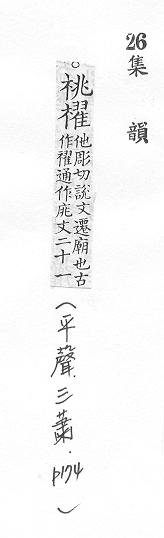 26
集韻
○
祧櫂
他彫切說文遷廟也古
作通作庣文二十一
(平聲.三蕭.p174)